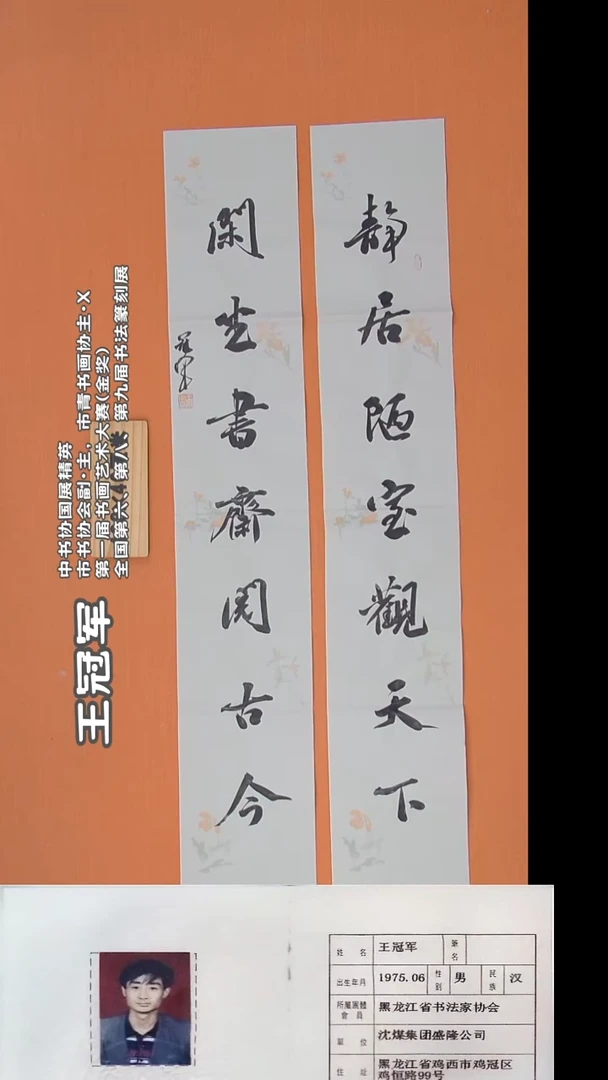 静居陋室觀天下
閑坐書齋閱古今
冠军
王冠军
中书协国展精英
市书协会副·主,市青书画协主·X
第一届书画艺术大赛(金奖)
全国第六、 第八、 第九届书法篆刻展
姓名 王冠军 笔名
出生年月 1975.06 性别 男 民族 汉
所属团体会员 黑龙江省书法家协会
单位 沈煤集团盛隆公司
住址 黑龙江省鸡西市鸡冠区
鸡恒路99号